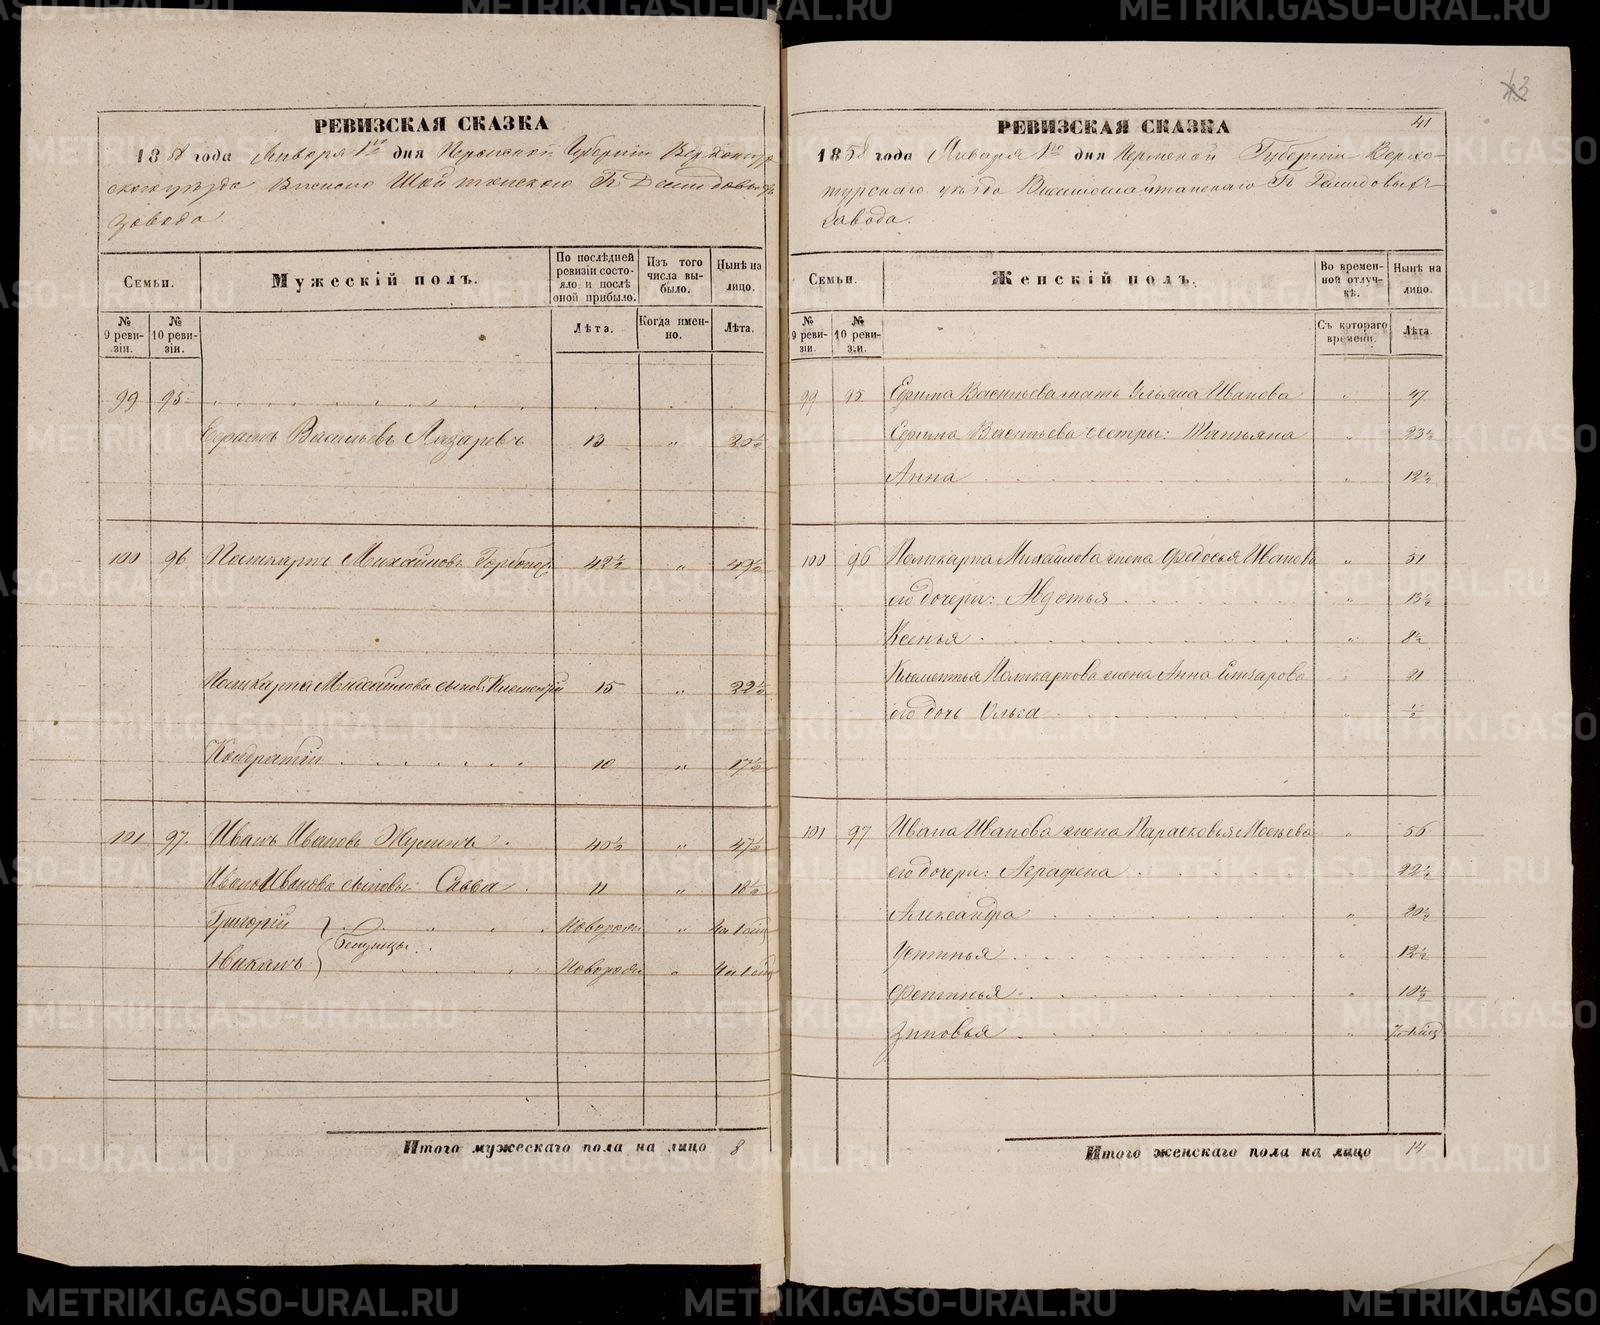 43
РЕВИЗСКАЯ СКАЗКА
1858 года Января 1го дня Пермской Губернии Верхотур
скаго уѣзда Висимо Шайтанскаго Гг Демидовыхъ
завода
Семьи.
Мужескій полъ.
По послѣдней ревизіи состояло и послѣ оной прибыло.
Изъ того числа выбыло.
Нынѣ на лицо.
№ 9 ревизіи.
№ 10 ревизіи.
Лѣта.
Когда именно.
Лѣта.
99 95
Василь​евъ Лазаревъ 13 „ 20½
100 96 Поликарпъ Михайловъ 42½ „ 49½
Поликарпа Михайлова сынов: Клементій 15 „ 22½
Кондратій 10 „ 17½
101 97 Иванъ Ивановъ 40½ „ 47½
Ивана Иванова сыновья: Савва 11 „ 18½
Григорій Новорож „
близнецы
Новорож „
Итого мужескаго пола на лицо 8
РЕВИЗСКАЯ СКАЗКА
41
1858 года Января 1го дня Пермской Губерніи Верхо-
турскаго уѣзда Висимошайтанскаго Гг Демидовыхъ
завода.
Семьи.
Женскій полъ.
Во временной отлучкѣ.
Нынѣ на лицо.
№ 9 ревизіи.
№ 10 ревизіи.
Съ котораго времени.
Лѣта
99 95 Васильева мать Ульяна Иванова „ 47
Васильева сестры: Татьяна „ 23½
Анна „ 12½
100 96 Поликарпа Михайлова жена Федосья Иванов „ 51
его дочери: Авдотья „ 13½
Ксенья „ 8½
Клементья Поликарпова жена Анна „ 21
его дочь Ольга „ ½
101 97 Ивана Иванова жена Парасковья Мосеева „ 56
его дочери: Аграфена „ 22½
Александра „ 20½
Устинья „ 12½
Фотинья „ 10½
Зиновья „
Итого женскаго пола на лицо 14
METRIKI.GASO-URAL.RU